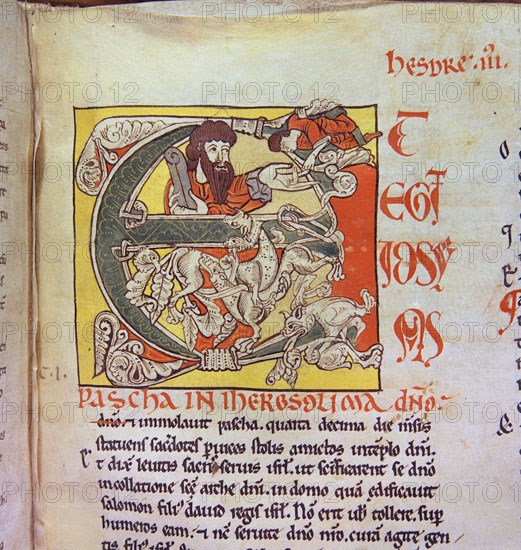 hesdre .iii.
E
T
EGIT
IOSY
AS
PASCHA IN IHEROSOLIMA dño.
dño. & immolavit pascha. quarta decima die m̄sis
statuens sac̄dotes p̄ vices stolis amictos in templo dñi.
& dix̄ levitis sacris servis isr̄l. ut scificarent se dño
in collatione sc̄e arche dñi. in domo quā edificavit
salomon filꝰ david regis isr̄l. Nō erit vob̄ tollere sup̄
humeros eam. & nē servite dño nr̄o. curā agite gen